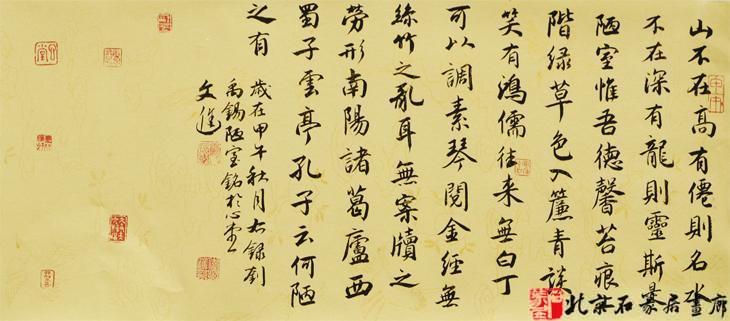 山不在高有僊則名水
不在深有龍則靈斯是
陋室惟吾德馨苔痕
階綠草色入簾青談
笑有鴻儒往来無白丁
可以調素琴閱金經無
絲竹之亂耳無案牘之
勞形南陽諸葛廬西
蜀子雲亭孔子云何陋
之有
歲在甲午秋月右錄劉
禹錫陋室銘於心堂
文進